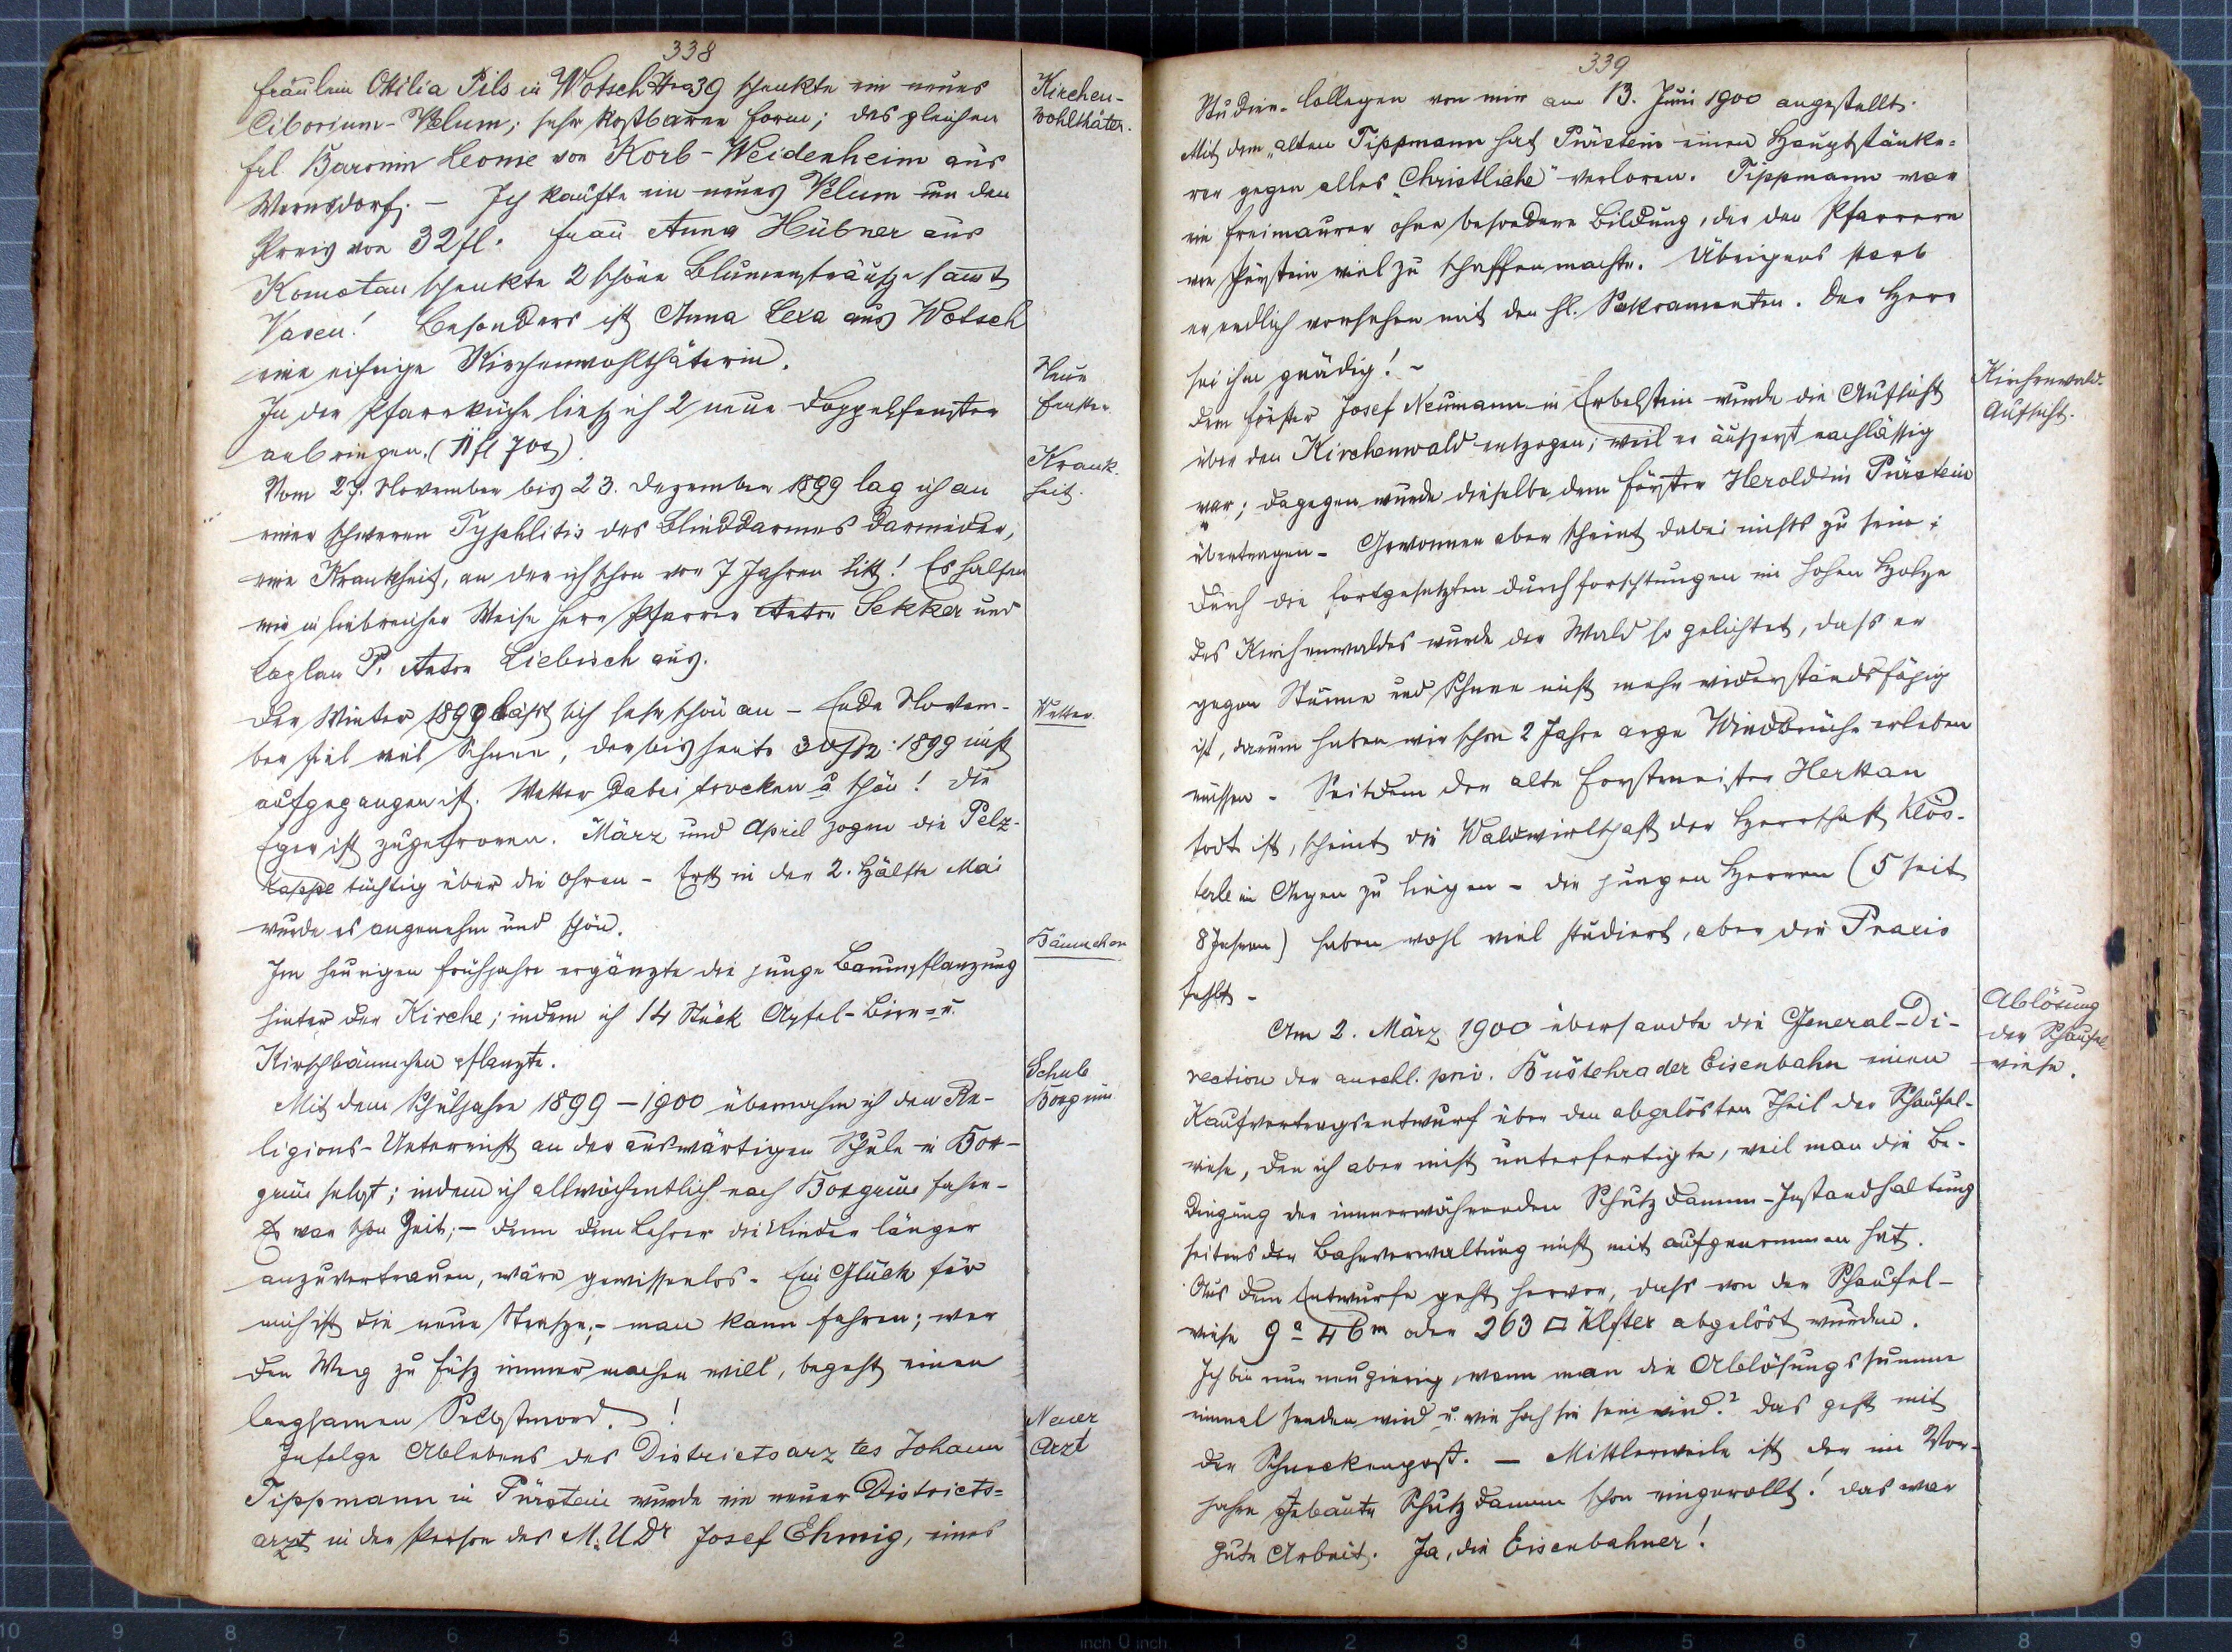 338
Fräulein Ottilia Pils in Wotsch Nro 39 schenkte ein neues
Ciborium-Velum; sehr kostbarer Form; des gleichen
Frl. Baronin Leonie von Korb-Weidenheim aus
Wernsdorf. – Ich kaufte ein neues Velum um den
Preis von 32 fl. Frau Anna Hübner aus
Komotau schenkte 2 schöne Blumensträuße samt
Vasen! Besonders ist Anna Lexa aus Wotsch
eine eifrige Kirchenwohlthäterin.
In der Pfarrküche ließ ich 2 neue Doppelfenster
anbringen. (11 fl 70x)
Vom 27. November bis 23. Dezember 1899 lag ich an
einer schweren Typhlitis des Blinddarmes darnieder,
eine Krankheit, an der ich schon vor 7 Jahren litt! Es halfen
mir in liebreicher Weise Herr Pfarrer Anton Sekker und
Caplan P. Anton Liebisch aus.
Der Winter 1899 läßt sich sehr schön an – Ende Novem-
ber fiel viel Schnee, der bis heute 30/12. 1899 nicht
aufgegangen ist. Wetter dabei trocken u schön! Die
Eger ist zugefroren. März und April zogen die Pelz-
kappe tüchtig über die Ohren – Erst in der 2. Hälfte Mai
wurde es angenehm und schön.
Im heurigen Frühjahre ergänzte die junge Baumpflanzung
hinter der Kirche; indem ich 14 Stück Apfel-Birn- u.
Kirschbäumchen pflanzte.
Mit dem Schuljahre 1899–1900 übernahm ich den Re-
ligions-Unterricht an der auswärtigen Schule in Bos-
grün selbst; indem ich allwöchentlich nach Bosgrün fahre –
Es war schon Zeit; – denn dem Lehrer die Kinder länger
anzuvertrauen, wäre gewissenlos. Ein Glück für
mich ist die neue Strasze; – man kann fahren; wer
den Weg zu Fuß immer machen will, begeht einen
langsamen Selbstmord. !
Infolge Ablebens des Districtsarztes Johann
Tippmann in Pürstein wurde ein neuer Districts-
arzt in der Person des M. U Dr Josef Ehmig, eines
Kirchen-
wohlthäter.
Neue
Fenster
Krank-
heit.
Wetter.
Bäumchen
Schule
Bosgrün
Neuer
Arzt
339
Studien-Collegen von mir am 13. Juni 1900 angestellt.
Mit dem „alten Tippmann hat Pürstein einen Hauptstänke-
rer gegen alles „Christliche" verloren. Tippmann war
ein Freimaurer ohne besondere Bildung, der den Pfarrern
von Pürstein viel zu schaffen machte. Übrigens starb
er endlich versehen mit den hl. Sakramenten. Der Herr
sei ihm gnädig! –
Dem Förster Josef Neumann in Erbelstein wurde die Aufsicht
über den Kirchenwald entzogen; weil er äußerst nachlässig
war; dagegen wurde dieselbe dem Förster Herold in Pürstein
übertragen – Gewonnen aber scheint dabei nichts zu sein;
durch die fortgesetzten Durchforstungen im hohen Holze
des Kirchenwaldes wurde der Wald so gelichtet, dass er
gegen Stürme und Schnee nicht mehr widerstandsfähig
ist, darum haben wir schon 2 Jahre arge Windbrüche erleben
müssen – Seitdem der alte Forstmeister Herttan
todt ist, scheint die Waldwirthschaft der Herrschaft Klös-
terle im Argen zu liegen – die jungen Herren (5 seit
8 Jahren) haben wohl viel studiert, aber die Praxis
fehlt –
Am 2. März 1900 übersandte die General-Di-
rection der auschl. priv. Buštehrader Eisenbahn einen
Kaufvertragsentwurf über den abgelösten Theil der Schaufel-
wiese, den ich aber nicht unterfertigte, weil man die Be-
dingung der immerwährenden Schutzdamm-Instandhaltung
seitens der Bahnverwaltung nicht mit aufgenommen hat.
Aus dem Entwurfe geht hervor, dass von der Schaufel-
wiese 9a 46m oder 263 □ Klfter abgelöst wurden.
Ich bin nur neugierig, wann man die Ablösungssumme
einmal senden wird u. wie hoch sie sein wird? Das geht mit
der Schneckenpost. – Mittlerweile ist der im Vor-
jahre gebaute Schutzdamm schon eingerollt! Das war
gute Arbeit. Ja, die Eisenbahner!
Kirchenwald-
Aufsicht.
Ablösung
der Schaufel-
wiese.